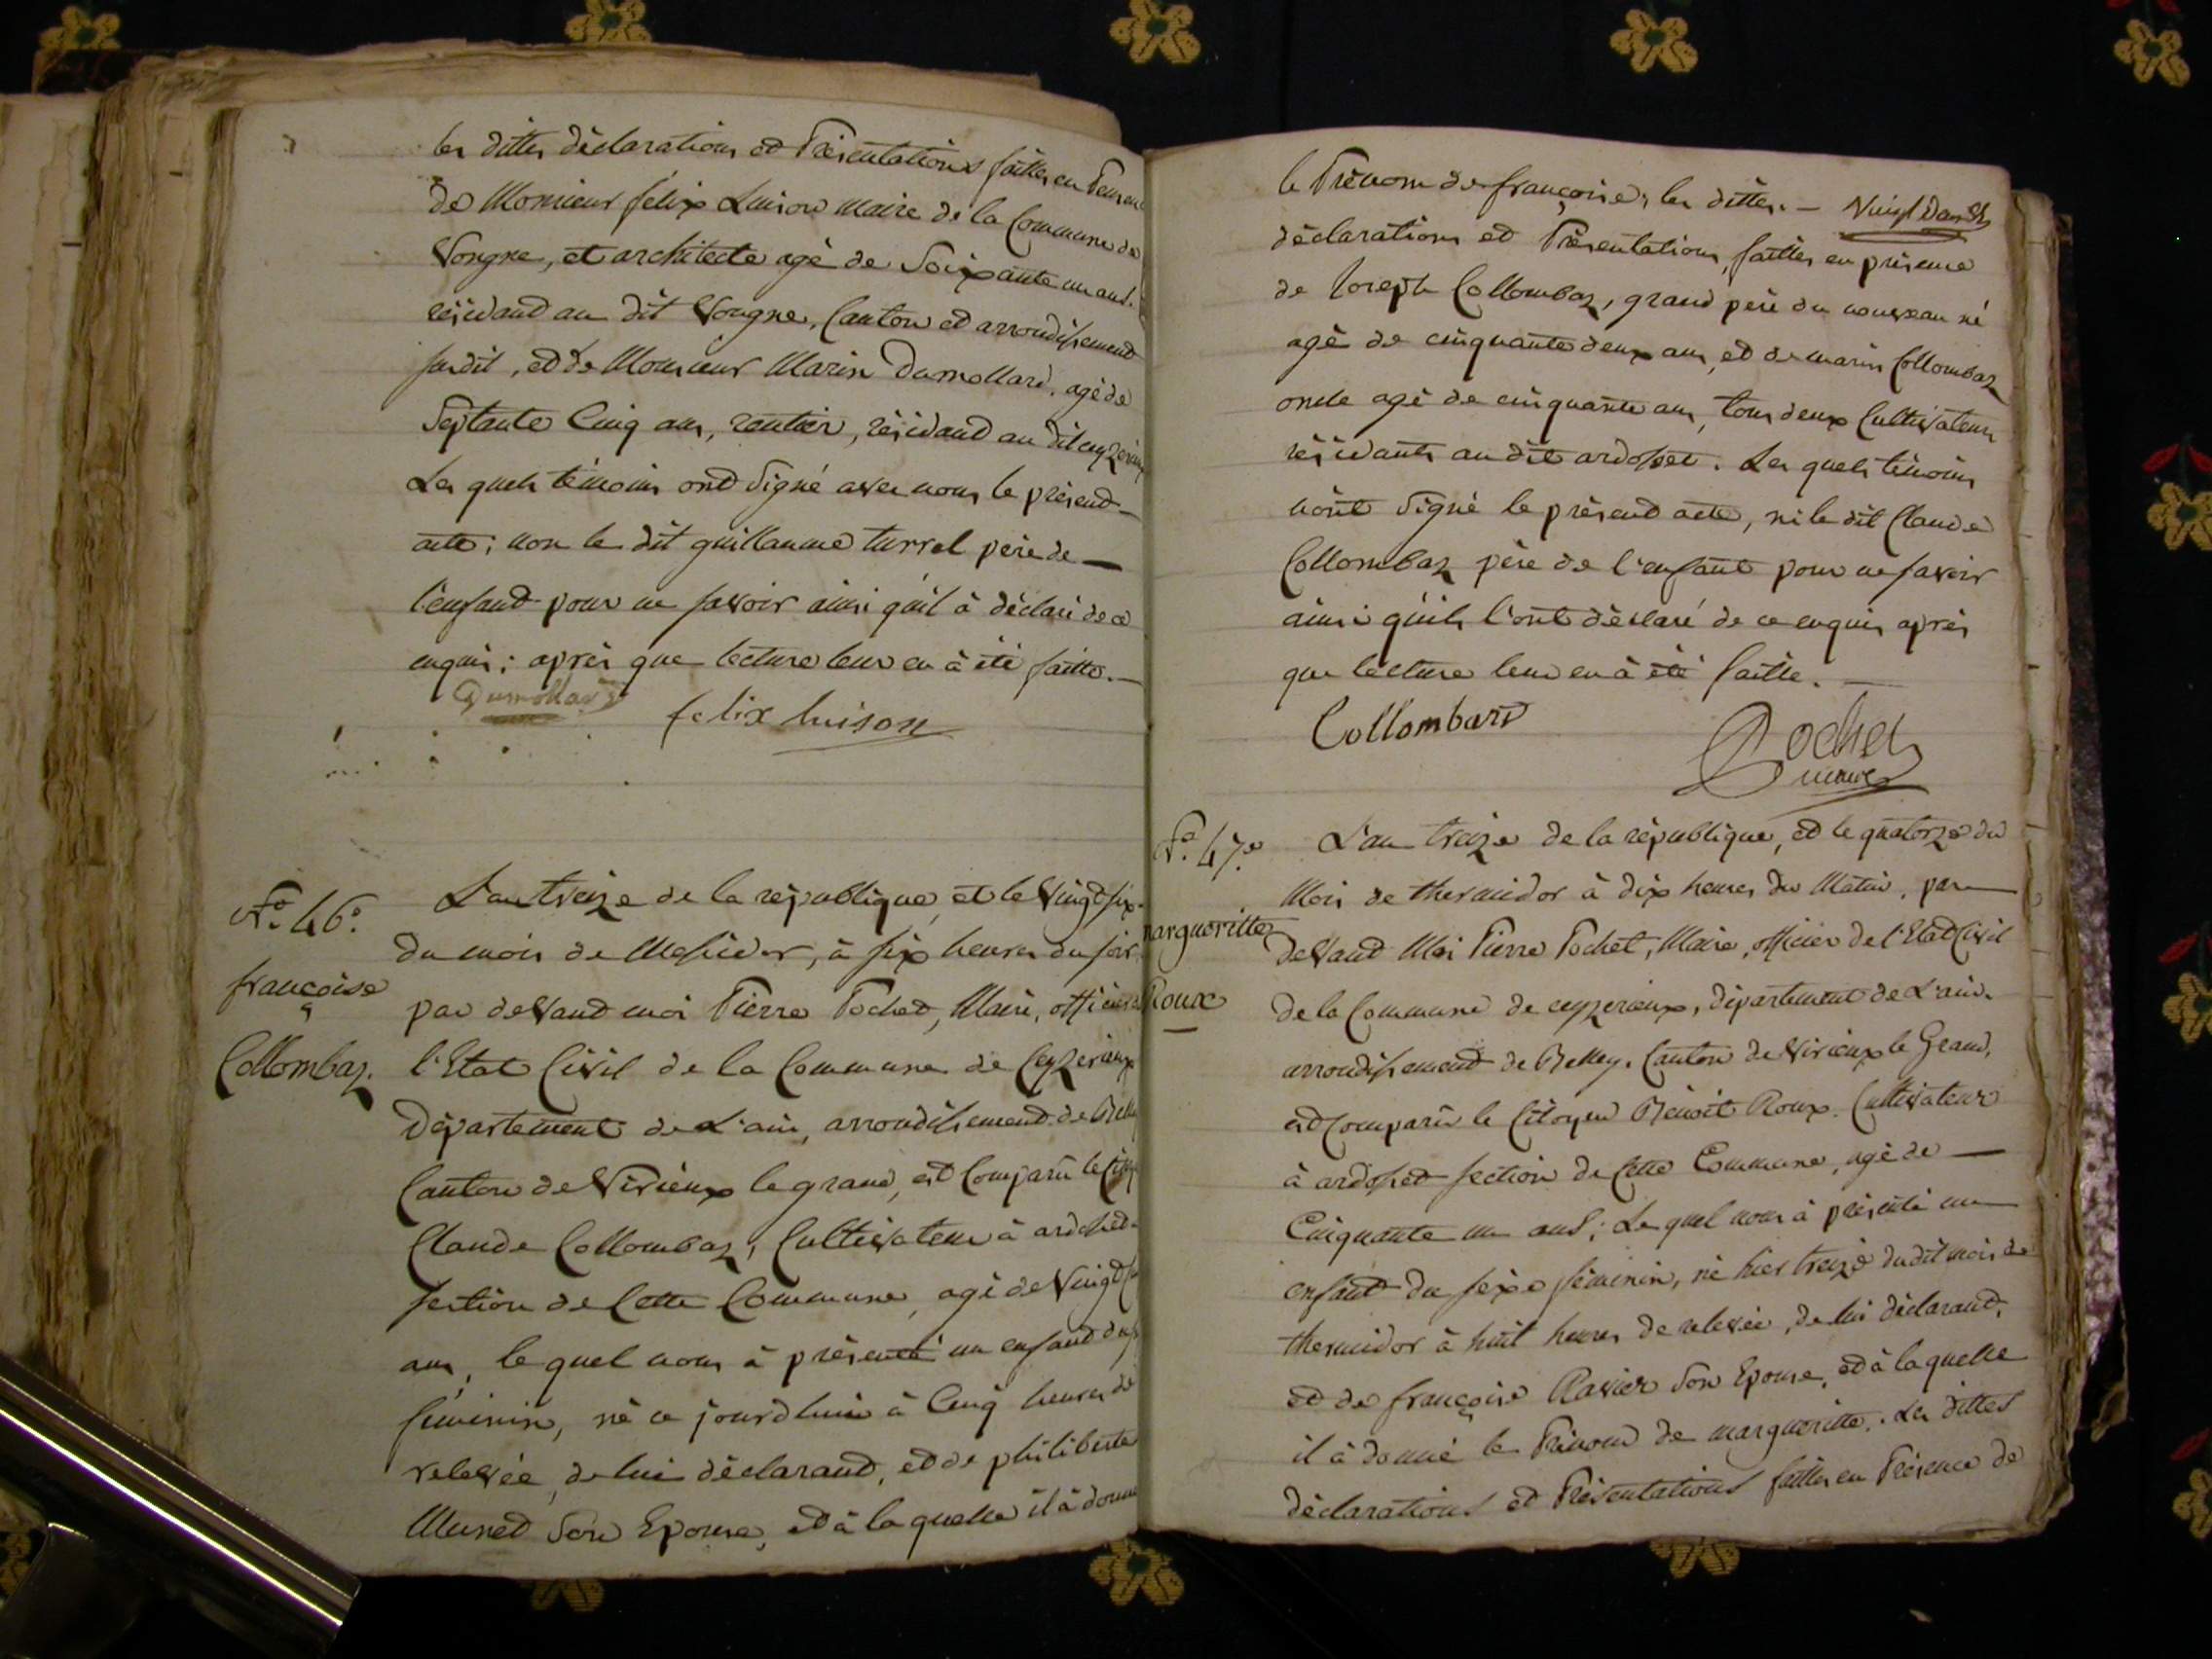 les dittes déclarations et Présentations faittes en
de Monsieur felix Luison maire de la Commune de
Vongne, et architecte agé de Soixante un ans.
résidand au dit Vongne, Canton et arrondissement
susdit, et de Monsieur Marin Dumollard, agé de
Septante Cinq ans, rentier, résidand au dit ceyzerieux
Les quels témoins ont Signé avec nous le présend
acte; non le dit guillaume turrel père de
l'enfand pour ne savoir ainsi qu'il à déclaré de ce
enquis; après que lecture leur en à été faitte.
Dumollard felix luison
No. 46e.
françoise
Collombaz.
L'an treize de la république, et le Vingt six
du mois de Messidor, à six heures du soir,
par devand moi Pierre Pochet, Maire, officier
l'Etat Civil de la Commune de Ceyzerieux
Département de L'ain, arrondissement de Belley
Canton de Virieux le grand, est Comparû le
Claude Collombaz, Cultivateur à ardosset
section de Cette Commune, agé de Vingt
ans, le quel nous à présenté un enfand du
féminin, né ce jourd'huis à Cinq heures de
relevée, de lui déclarand, et de philiberte
Munet Son Epouse, et à la quelle il à donné
le Prénom de françoise, les dittes. — Vuingt Deux
déclarations et Présentations, faittes en présence
de Joseph Collombaz, grand père du nouveau né
agé de cinquante deux ans, et de marin Collombaz
oncle agé de cinquante ans, tous deux Cultivateurs
résidants au dit ardosset. Les quels témoins
n'ont Signé le présend acte, ni le dit Claude
Collombaz père de l'enfant pour ne savoir
ainsi qu'ils l'ont déclaré de ce enquis après
que lecture leur en à été faitte.
Collombard
Pochet
maire
No. 47e.
marguoritte
Roux
L'an treize de la république, et le quatorze du
Mois de thermidor à dix heures du Matin, par
devand Moi Pierre Pochet, Maire, officier de l'Etat Civil
de la Commune de ceyzerieux, département de L'ain.
arrondissement de Belley, Canton de Virieux le Grand,
est Comparû le Citoyen Benoit Roux. Cultivateur
à ardosset section de Cette Commune, agé de
Cinquante un ans; Le quel nous à présenté un
enfant du sexe féminin, né hier treize du dit mois de
thermidor à huit heures de relevée, de lui déclarand,
et de françoise Ravier Son Epouse, et à la quelle
il à donné le Prénom de marguoritte. Les dittes
déclarations et Présentations faittes en Présence de